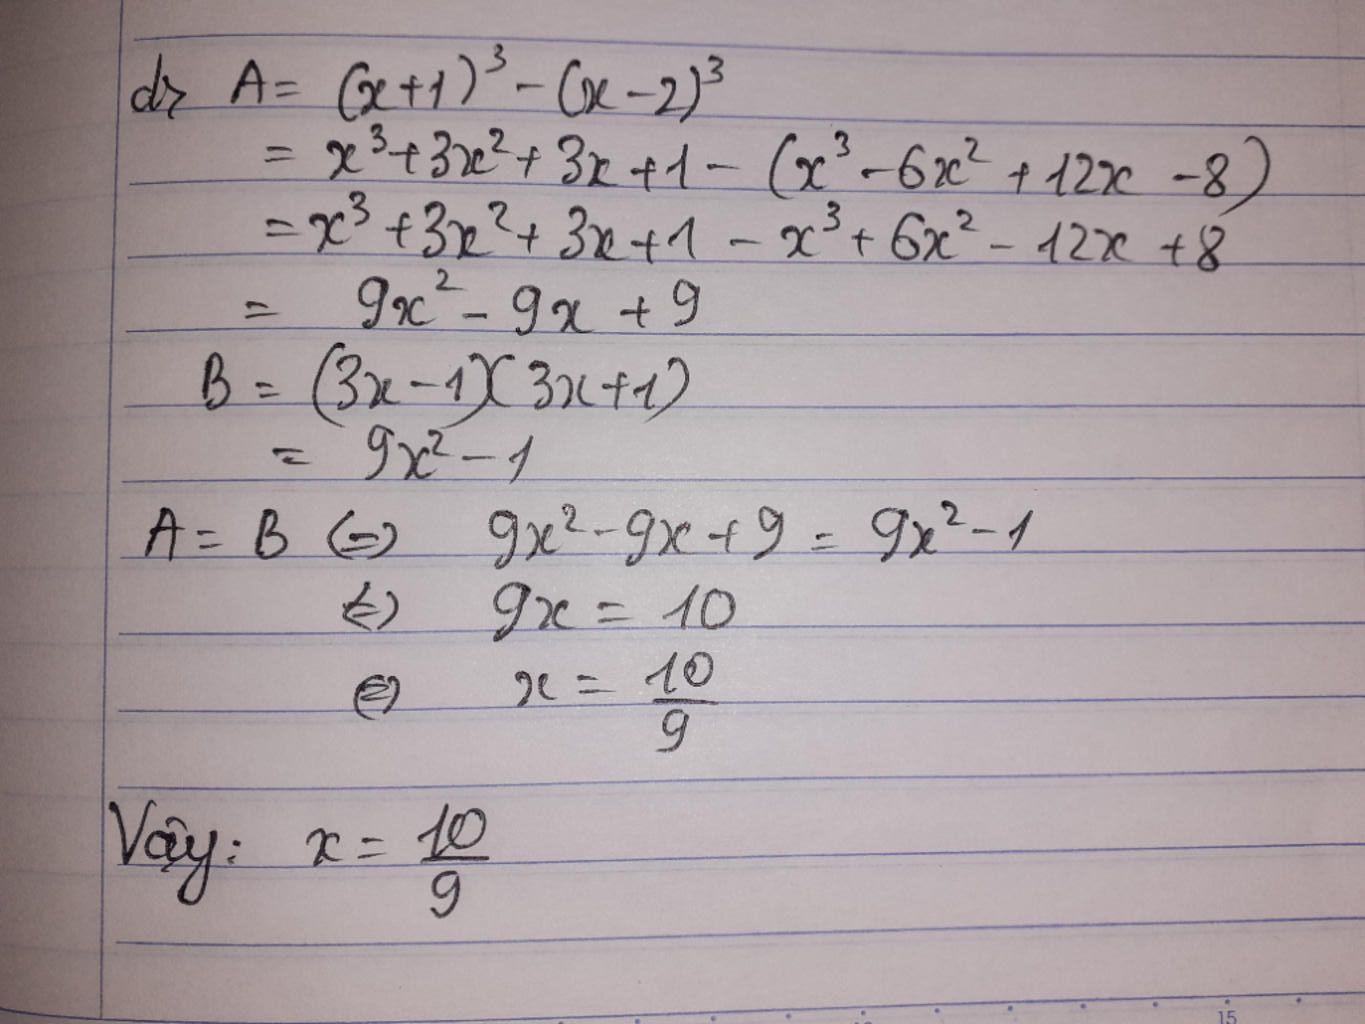 d, A = (x+1)³ - (x-2)³
= x³+3x²+3x+1 - (x³-6x²+12x-8)
= x³+3x²+3x+1 - x³+6x²-12x+8
= 9x² - 9x + 9
B = (3x-1)(3x+1)
= 9x² - 1
A = B (=) 9x²-9x+9 = 9x²-1
(=) 9x = 10
(=) x = 10/9
Vậy: x = 10/9
15